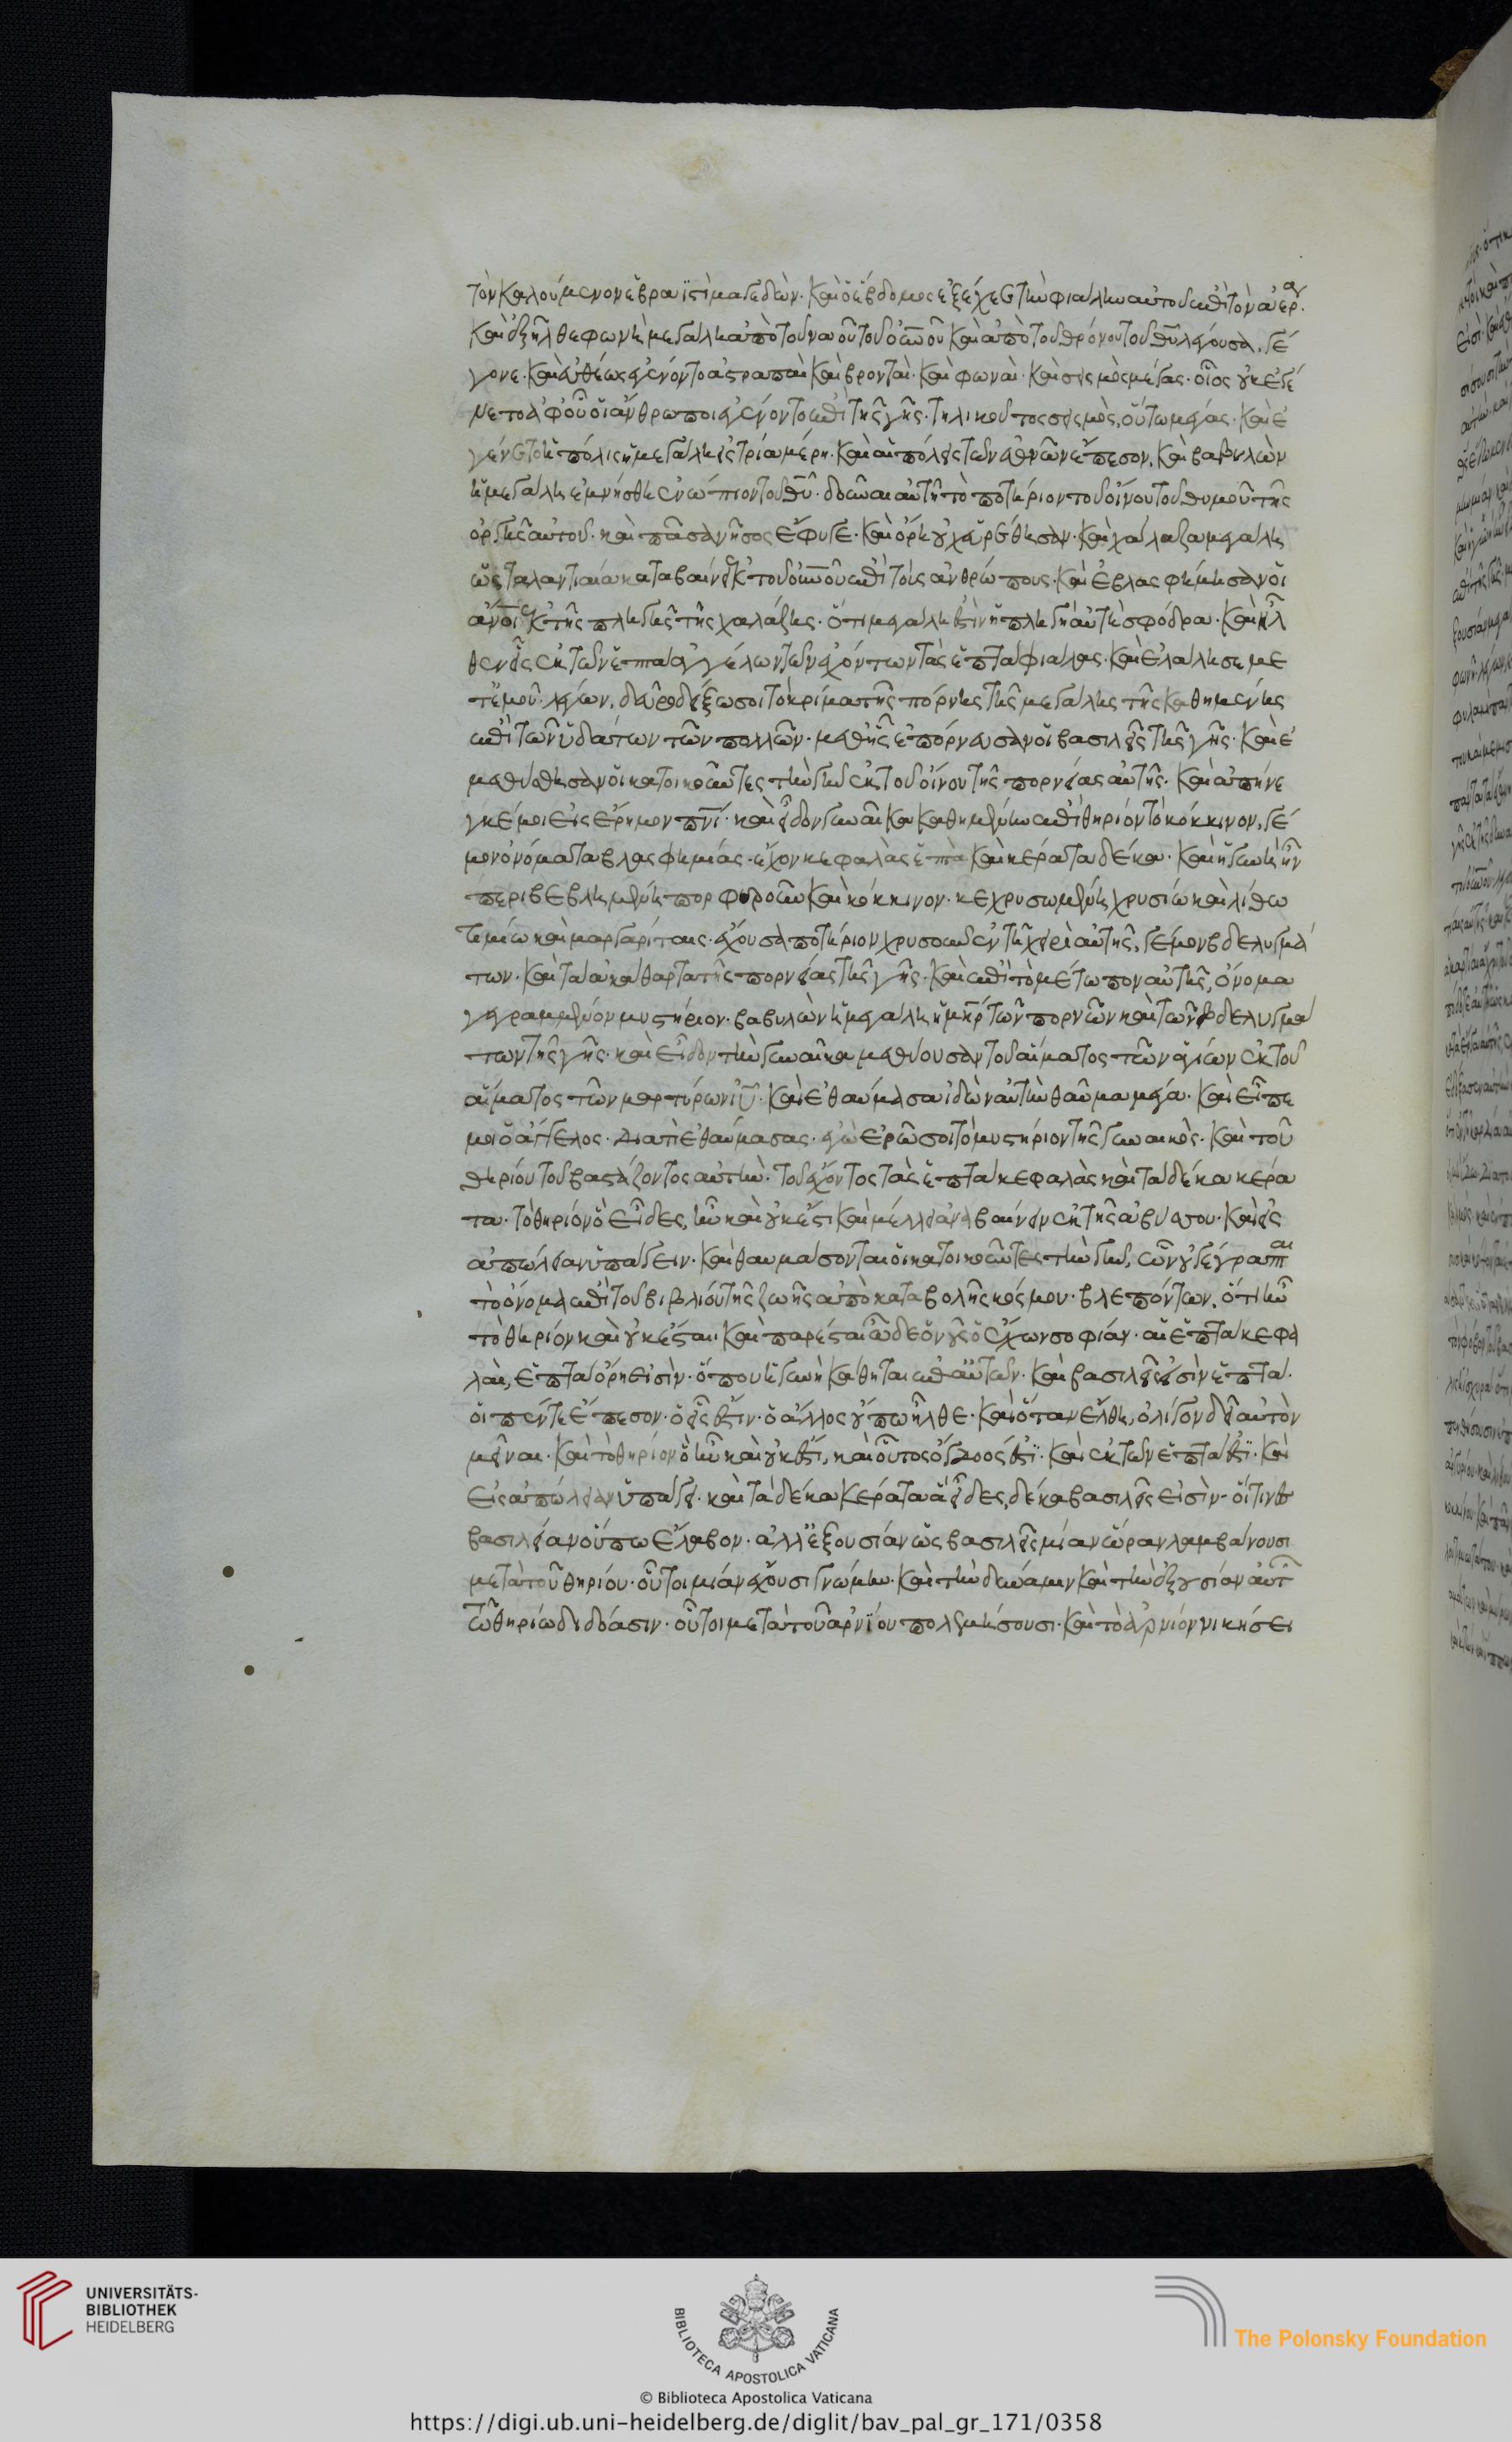 τὸν καλούμενον ἑβραϊστὶ μαγεδών· καὶ ὁ ἕβδομος ἐξέχεε τὴν φιάλην αὐτοῦ ἐπὶ τὸν ἀέρα·
καὶ ἐξῆλθε φωνὴ μεγάλη ἀπὸ τοῦ ναοῦ τοῦ οὐνοῦ καὶ ἀπὸ τοῦ θρόνου τοῦ θυ λέγουσα, γέ
γονε· καὶ εὐθέως ἐγένοντο ἀστραπαὶ καὶ βρονταὶ· καὶ φωναὶ· καὶ σεισμὸς μέγας· οἷος οὐκ ἐγέ
νετο ἀφ' οὗ οἱ ἄνθρωποι ἐγένοντο ἐπὶ τῆς γῆς· τηλικοῦτος σεισμὸς, οὕτω μέγας· καὶ ἐ
γένετο ἡ πόλις ἡ μεγάλη εἰς τρία μέρη· καὶ αἱ πόλεις τῶν ἐθνῶν ἔπεσον, καὶ βαβυλὼν
ἡ μεγάλη ἐμνήσθη ἐνώπιον τοῦ θυ· δοῦναι αὐτῇ τὸ ποτήριον τοῦ οἴνου τοῦ θυμοῦ τῆς
ὀργῆς αὐτοῦ· καὶ πᾶσα νῆσος ἔφυγε· καὶ ὄρη οὐχ εὑρέθησαν· καὶ χάλαζα μεγάλη
ὡς ταλαντιαία καταβαίνει ἐκ τοῦ οὐνοῦ ἐπὶ τοὺς ἀνθρώπους· καὶ ἐβλασφήμησαν οἱ
ἄνοι ἐκ τῆς πληγῆς τῆς χαλάζης· ὅτι μεγάλη ἐστὶν ἡ πληγὴ αὐτὴ σφόδρα· καὶ ἦλ
θεν εἷς ἐκ τῶν ἑπτὰ ἀγγέλων τῶν ἐχόντων τὰς ἑπτὰ φιάλας· καὶ ἐλάλησε με
τ' ἐμοῦ λέγων, δεῦρο δείξω σοι τὸ κρίμα τῆς πόρνης τῆς μεγάλης τῆς καθημένης
ἐπὶ τῶν ὑδάτων τῶν πολλῶν· μεθ' ἧς ἐπόρνευσαν οἱ βασιλεῖς τῆς γῆς· καὶ ἐ
μεθύσθησαν οἱ κατοικοῦντες τὴν γῆν ἐκ τοῦ οἴνου τῆς πορνείας αὐτῆς· καὶ ἀπήνε
γκέ με εἰς ἔρημον πνι· καὶ εἶδον γυναῖκα καθημένην ἐπὶ θηρίον τὸ κόκκινον, γέ
μον ὀνόματα βλασφημίας· ἔχον κεφαλὰς ἑπτὰ καὶ κέρατα δέκα· καὶ ἡ γυνὴ ἦν
περιβεβλημένη πορφυροῦν καὶ κόκκινον· κεχρυσωμένη χρυσίω καὶ λίθω
τιμίω καὶ μαργαρίταις· ἔχουσα ποτήριον χρυσοῦν ἐν τῇ χειρὶ αὐτῆς, γέμον βδελυγμά
των· καὶ τὰ ἀκάθαρτα τῆς πορνείας τῆς γῆς· καὶ ἐπὶ τὸ μέτωπον αὐτῆς, ὄνομα
γεγραμμένον μυστήριον· βαβυλὼν ἡ μεγάλη ἡ μηρ τῶν πορνῶν καὶ τῶν βδελυγμά
των τῆς γῆς· καὶ εἶδον τὴν γυναῖκα μεθύουσαν τοῦ αἵματος τῶν ἁγίων ἐκ τοῦ
αἵματος τῶν μαρτύρων ιυ· καὶ ἐθαύμασα ἰδὼν αὐτὴν θαῦμα μέγα· καὶ εἶπε
μοι ὁ ἄγγελος· διατὶ ἐθαύμασας· ἐγὼ ἐρῶ σοι τὸ μυστήριον τῆς γυναικὸς· καὶ τοῦ
θηρίου τοῦ βαστάζοντος αὐτὴν· τοῦ ἔχοντος τὰς ἑπτὰ κεφαλὰς καὶ τὰ δέκα κέρα
τα· τὸ θηρίον ὃ εἶδες, ἦν καὶ οὐκ ἔστι καὶ μέλλει ἀναβαίνειν ἐκ τῆς ἀβύσσου· καὶ εἰς
ἀπώλειαν ὑπάγειν· καὶ θαυμάσονται οἱ κατοικοῦντες τὴν γῆν, ὧν οὐ γέγραπται
τὸ ὄνομα ἐπὶ τοῦ βιβλίου τῆς ζωῆς ἀπὸ καταβολῆς κόσμου· βλεπόντων, ὅτι ἦν
τὸ θηρίον καὶ οὐκ ἔσται· καὶ παρέσται ὧδε ὁ νοῦς ὁ ἔχων σοφίαν· αἱ ἑπτὰ κεφα
λαὶ, ἑπτὰ ὄρη εἰσὶν· ὅπου ἡ γυνὴ κάθηται ἐπ' αὐτῶν· καὶ βασιλεῖς εἰσὶν ἑπτά·
οἱ πέντε ἔπεσον· ὁ εἷς ἐστίν· ὁ ἄλλος οὔπω ἦλθε· καὶ ὅταν ἔλθη, ὀλίγον δεῖ αὐτὸν
μεῖναι· καὶ τὸ θηρίον ὃ ἦν καὶ οὐκ ἐστί, καὶ οὗτος ὄγδοός ἐστι· καὶ ἐκ τῶν ἑπτά ἐστι· καὶ
εἰς ἀπώλειαν ὑπάγει· καὶ τὰ δέκα κέρατα ἃ εἶδες, δέκα βασιλεῖς εἰσὶν· οἵτινες
βασιλείαν οὔπω ἔλαβον· ἀλλ' ἐξουσίαν ὡς βασιλεῖς μίαν ὥραν λαμβάνουσι
μετὰ τοῦ θηρίου· οὗτοι μίαν ἔχουσι γνώμην· καὶ τὴν δύναμιν καὶ τὴν ἐξουσίαν αὐτ
τῶ θηρίω διδόασιν· οὗτοι μετὰ τοῦ ἀρνίου πολεμήσουσι· καὶ τὸ ἀρνίον νικήσει
UNIVERSITÄTS-
BIBLIOTHEK
HEIDELBERG
BIBLIOTECA APOSTOLICA VATICANA
© Biblioteca Apostolica Vaticana
The Polonsky Foundation
https://digi.ub.uni-heidelberg.de/diglit/bav_pal_gr_171/0358